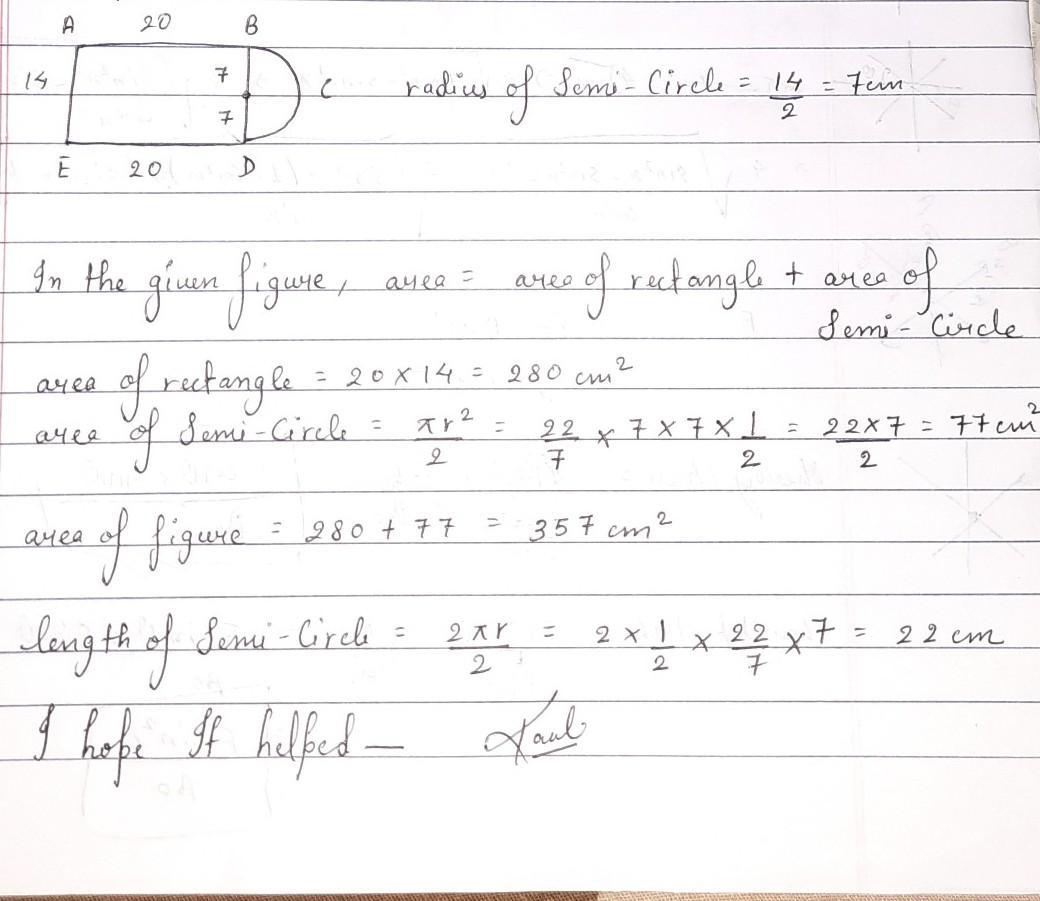 A 20 B
14 7 C radius of Semi-Circle = 14/2 = 7cm
7
E 20 D
In the given figure, area = area of rectangle + area of
Semi-Circle
area of rectangle = 20 × 14 = 280 cm²
area of Semi-Circle = πr²/2 = 22/7 × 7 × 7 × 1/2 = 22×7/2 = 77 cm²
area of figure = 280 + 77 = 357 cm²
length of Semi-Circle = 2πr/2 = 2 × 1/2 × 22/7 × 7 = 22 cm
I hope It helped —